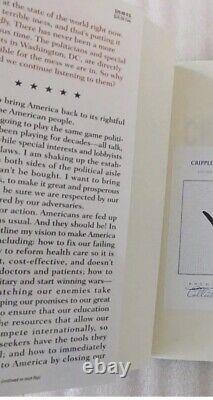 at the state of the world right now.
terrible mess, and that's putting
dly. There has never been a more
us time. The politicians and special
ts in Washington, DC, are directly
ible for the mess we are in. So
ould we continue listening to them?
★ ★ ★ ★ ★
o bring America back to its rightful
he American people.
going to play the same game politi-
been playing for decades—all talk,
while special interests and lobbyists
laws. I am shaking up the estab-
n both sides of the political aisle
n't be bought. I want to bring
to make it great and prosperous
be sure we are respected by
ared by our adversaries.
or action. Americans are fed up
us. And they should be! In
utline my vision to make America
ncluding: how to fix our failing
to reform health care so it is
t, cost-effective, and doesn't
doctors and patients; how to
itary and start winning wars—
atching our enemies take
ping our promises to our great
o ensure that our education
the resources that allow our
mpete internationally, so
seekers have the tools they
and how to immediately
k to America by closing our
(continued on back flap)
CRIPPLE
Colle